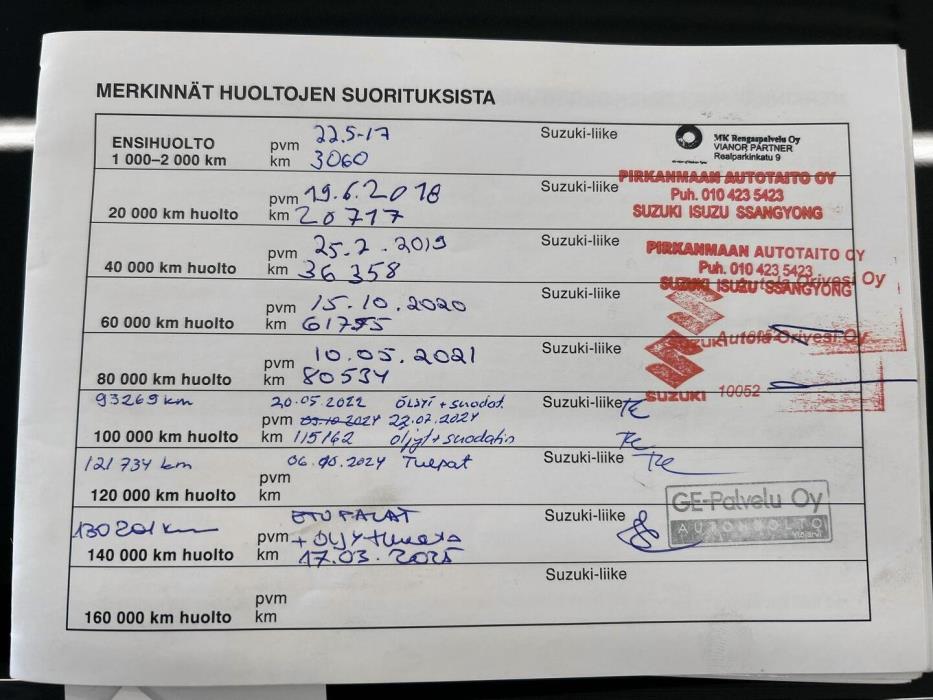 MERKINNÄT HUOLTOJEN SUORITUKSISTA
ENSIHUOLTO pvm 22.5-17 Suzuki-liike MK Rengaspalvelu Oy
VIANOR PARTNER
1 000–2 000 km km 3060 Realparkinkatu 9
pvm 19.6.2018 Suzuki-liike PIRKANMAAN AUTOTAITO OY
Puh. 010 423 5423
20 000 km huolto km 20717 SUZUKI ISUZU SSANGYONG
pvm 25.7.2019 Suzuki-liike PIRKANMAAN AUTOTAITO OY
Puh. 010 423 5423
40 000 km huolto km 36 358 SUZUKI ISUZU SSANGYONG
Autola Orivesi Oy
pvm 15.10.2020 Suzuki-liike
60 000 km huolto km 61795
SUZUKI Autola Orivesi Oy
pvm 10.05.2021 Suzuki-liike
80 000 km huolto km 80534 SUZUKI 10052
93269 km 20.05.2022 ÖLJYT + suodat. Suzuki-liike TE
pvm 03.10.2024 22.02.2024
100 000 km huolto km 115162 öljyt + suodatin TE
121 734 km 06.05.2024 Tulpat Suzuki-liike TE
pvm
120 000 km huolto km
130201 km ETUPALAT Suzuki-liike GE-Palvelu Oy
pvm + ÖLJY + AUTOHUOLTO
Ylöjärvi
140 000 km huolto km 17.03.2025
Suzuki-liike
pvm
160 000 km huolto km